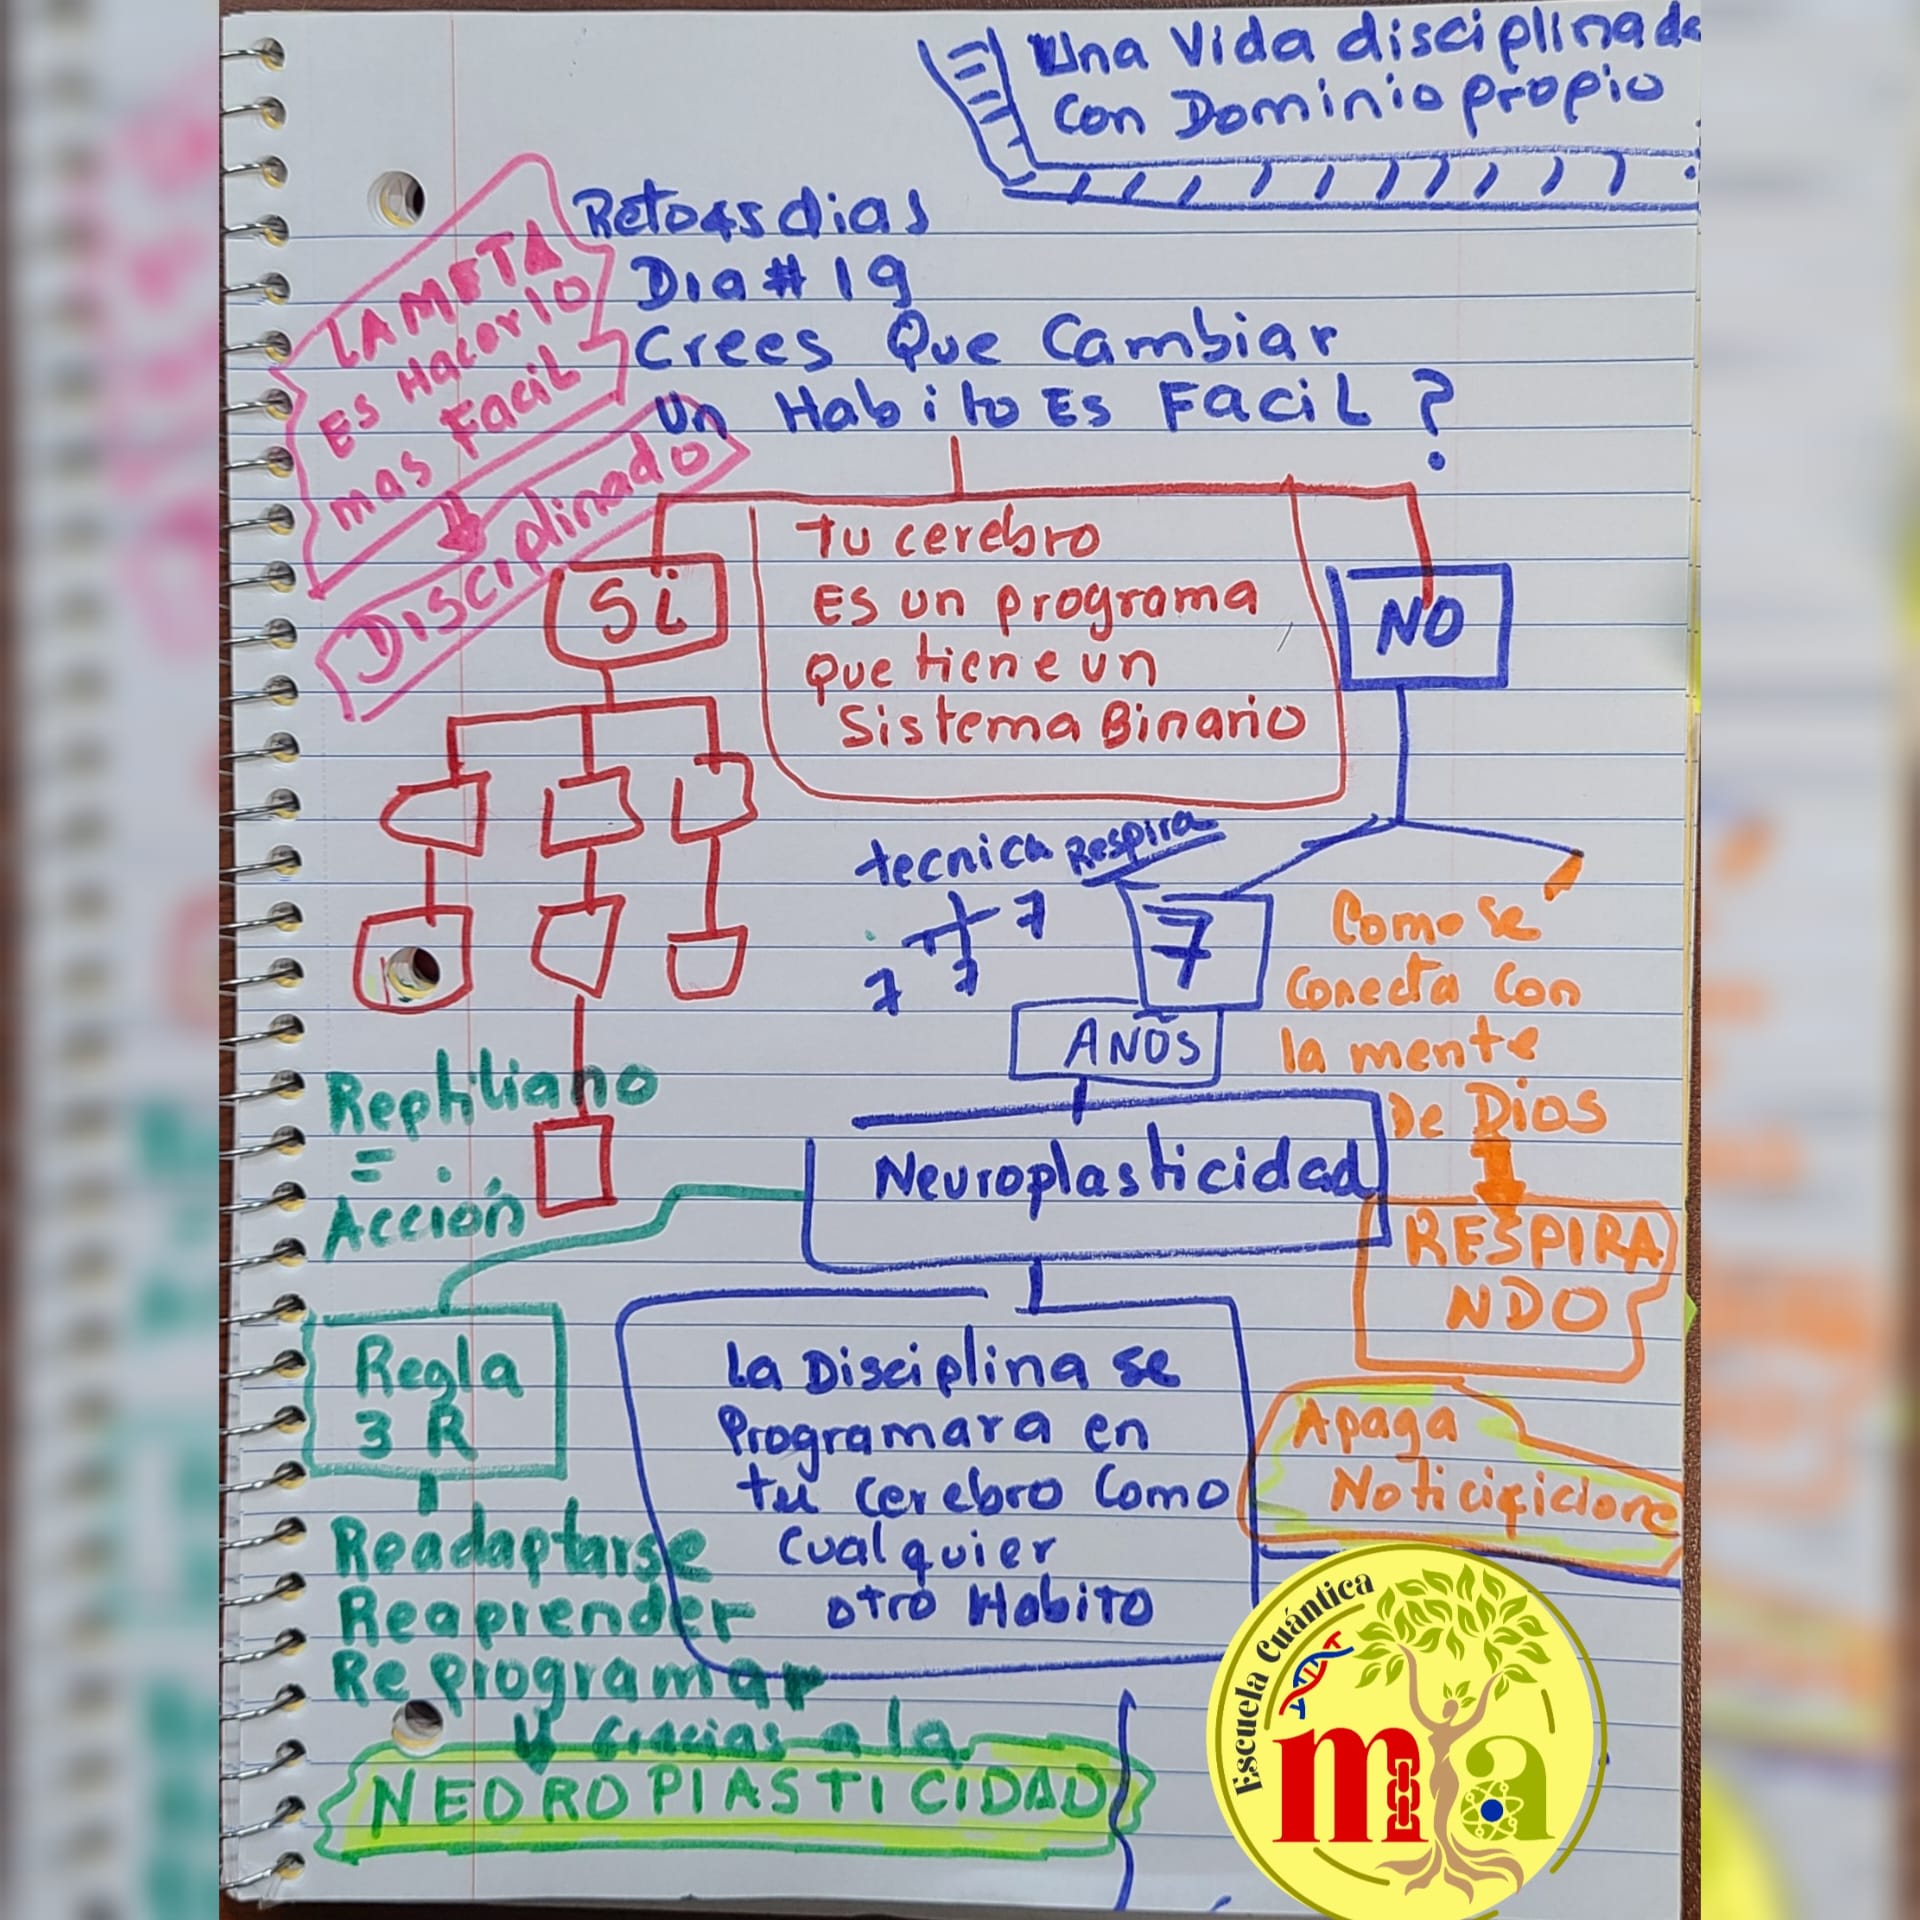 Una Vida disciplinada
Con Dominio propio
Reto 45 dias
Dia # 19
Crees Que Cambiar
Un Habito Es Facil ?
LA META
Es Hacerlo
mas Facil
Disciplinado
Si
Tu cerebro
Es un programa
Que tiene un
Sistema Binario
NO
tecnica Respira
7
7 7
7
AÑOS
Como se
conecta con
la mente
De Dios
RESPIRA
NDO
Reptiliano
=
Acción
Neuroplasticidad
Regla
3 R
La Disciplina se
Programara en
tu Cerebro Como
Cualquier
otro Habito
Apaga
Readaptarse
Reaprender
Reprogramar
Gracias a la
NEUROPLASTICIDAD
Escuela Cuántica
mia